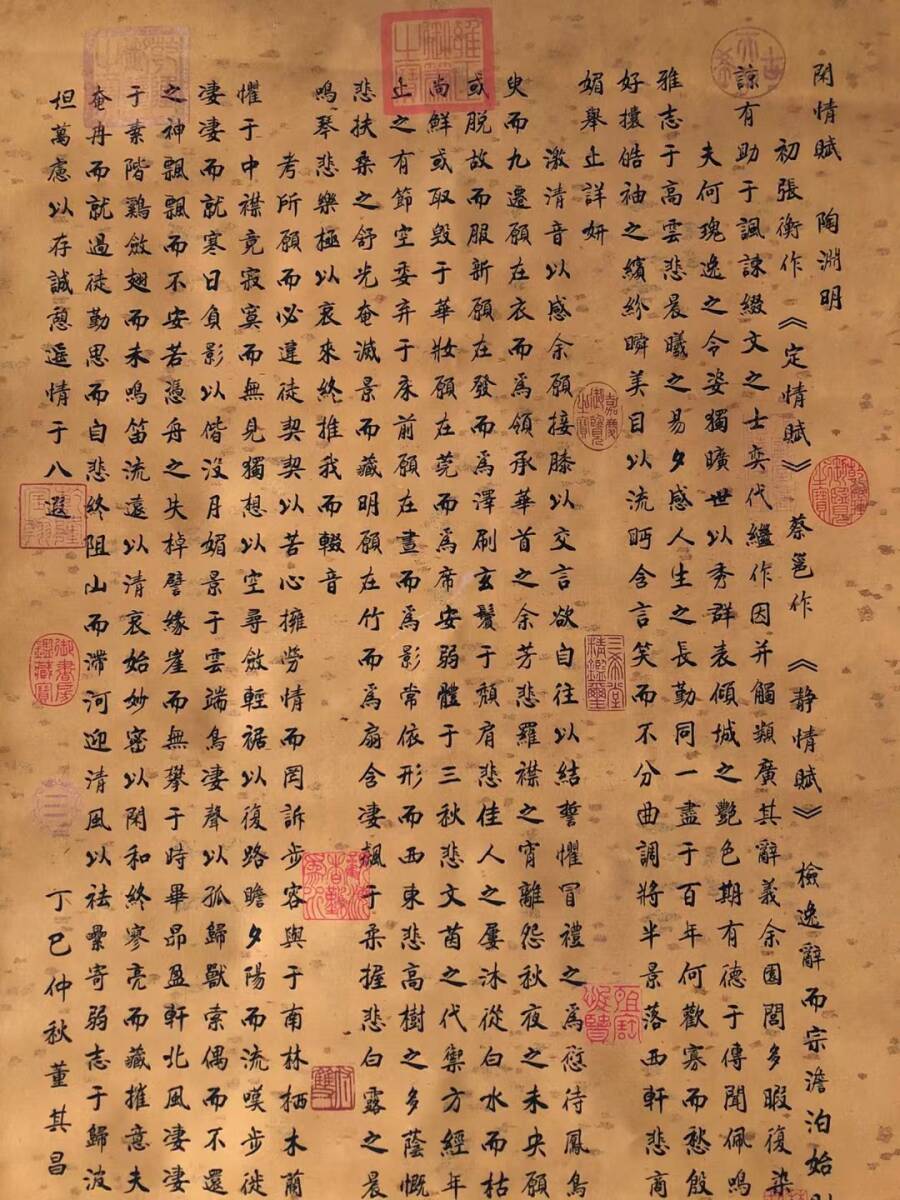 閑情賦 陶淵明
初張衡作《定情賦》蔡邕作《静情賦》檢逸辭而宗澹泊始
諒有助于諷諫綴文之士奕代繼作因并觸類廣其辭義余園閭多暇復染
夫何瑰逸之令姿獨曠世以秀群表傾城之艷色期有德于傳聞佩鳴
雅志于高雲悲晨曦之易夕感人生之長勤同一盡于百年何歡寡而愁殷
好攘皓袖之繽紛瞬美目以流眄含言笑而不分曲調將半景落西軒悲商
媚舉止詳妍
激清音以感余願接膝以交言欲自往以結誓懼冒禮之爲愆待鳳鳥
臾而九遷願在衣而爲領承華首之余芳悲羅襟之宵離怨秋夜之未央願
或脱故而服新願在發而爲澤刷玄鬢于頹肩悲佳人之屢沐從白水而枯
尚鮮或取毀于華妝願在莞而爲席安弱體于三秋悲文茵之代禦方經年
止之有節空委弃于床前願在晝而爲影常依形而西東悲高樹之多蔭慨
悲扶桑之舒光奄滅景而藏明願在竹而爲扇含凄飆于柔握悲白露之晨
鳴琴悲樂極以哀來終推我而輟音
考所願而必違徒契契以苦心擁勞情而罔訴步容與于南林栖木蘭
懼于中襟竟寂寞而無見獨想以空尋斂輕裾以復路瞻夕陽而流嘆步徙
凄凄而就寒日負影以偕没月媚景于雲端鳥凄聲以孤歸獸索偶而不還
之神飄飄而不安若憑舟之失棹譬緣崖而無攀于時畢昴盈軒北風凄凄
于素階鷄斂翅而未鳴笛流遠以清哀始妙密以閑和終寥亮而藏摧意夫
奄冉而就過徒勤思而自悲終阻山而滯河迎清風以祛纍寄弱志于歸波
坦萬慮以存誠憩遥情于八遐 丁巳仲秋董其昌
古希天子
乾隆御覽之寶
嘉慶御覽之寶
三希堂精鑒璽
御書房鑒藏寶